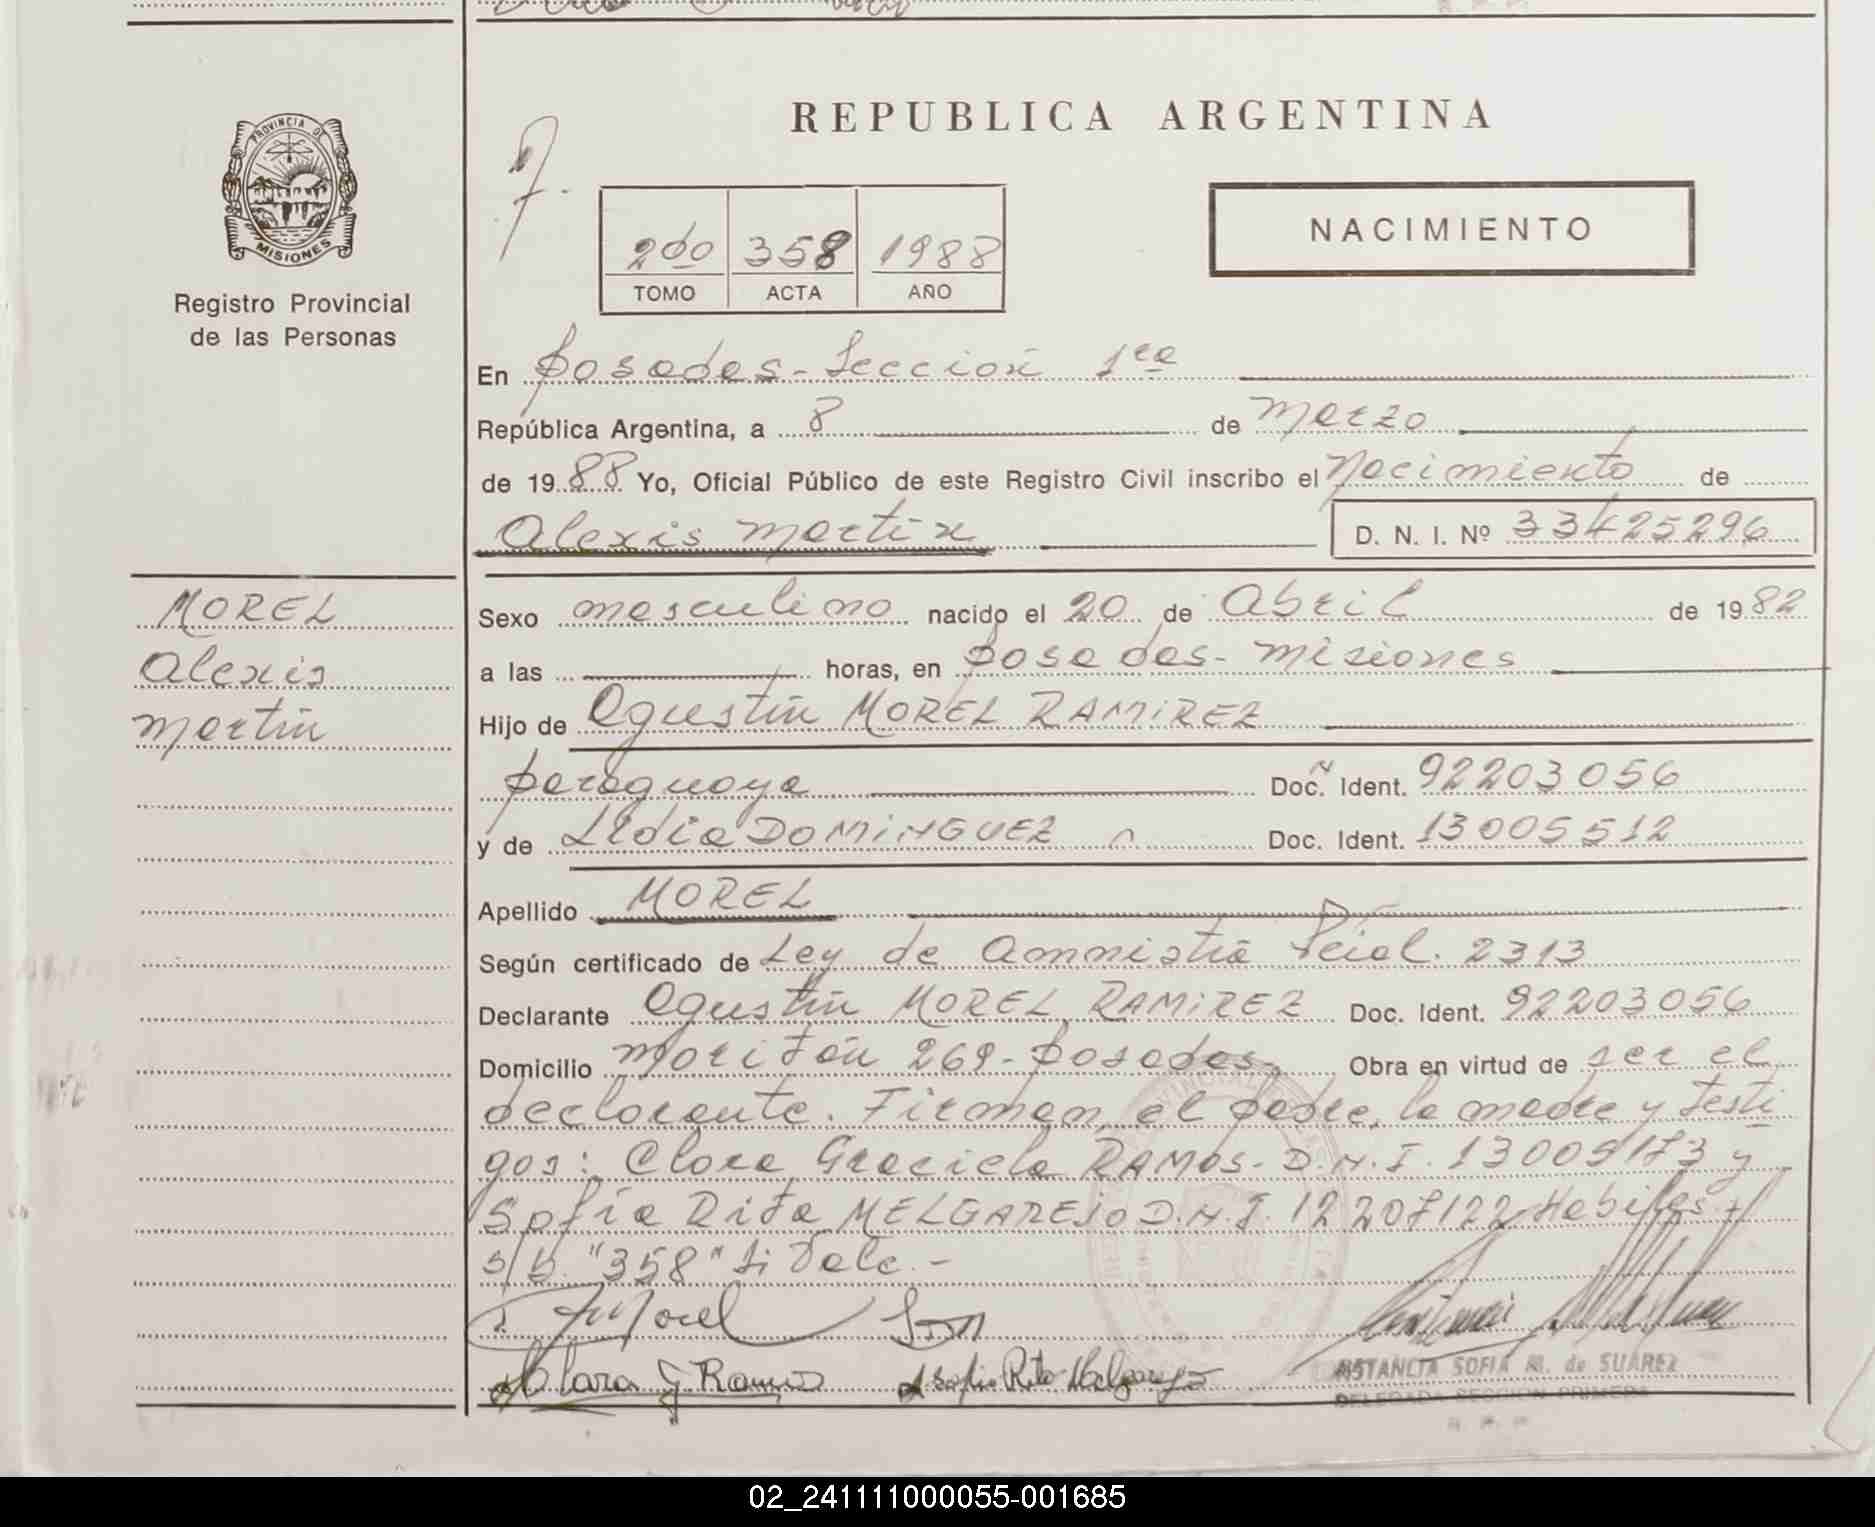 REPUBLICA ARGENTINA
PROVINCIA DE
MISIONES
Registro Provincial
de las Personas
2do 358 1988
TOMO ACTA AÑO
NACIMIENTO
En Posadas - Sección 1ra
República Argentina, a 8 de Marzo
de 1988 Yo, Oficial Público de este Registro Civil inscribo el Nacimiento de
Alexis Martín D. N. I. Nº 33425296
MOREL
Alexis
Martín
Sexo masculino nacido el 20 de Abril de 1982
a las horas, en Posadas - Misiones
Hijo de Agustín MOREL RAMIREZ
paraguaya Doc. Ident. 92203056
y de Lidia DOMINGUEZ Doc. Ident. 13005512
Apellido MOREL
Según certificado de Ley de Amnistía Pcial. 2313
Declarante Agustín MOREL RAMIREZ Doc. Ident. 92203056
Domicilio 269 - Posadas, Obra en virtud de ser el
declarante. Firman, el padre, la madre y testi
gos: Clara Graciela RAMOS - D.N.I. 13005173 y
Sofía Rita MELGAREJO D.N.I. 12207122 Habiles
s/b. "358" Si Vale.-
Morel
Clara G Ramos Sofia Rita Melgarejo
SOFIA M. de SUAREZ
DELEGADA SECCION PRIMERA
02_241111000055-001685